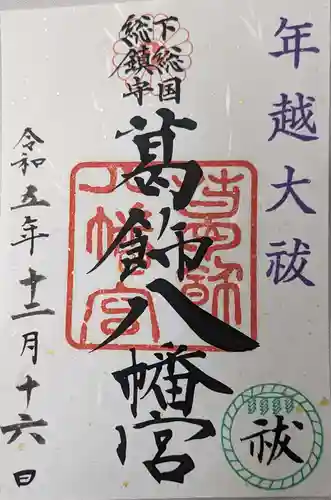 年越大祓
下総国
総鎮守
葛飾八幡宮
葛飾
八幡宮
令和五年十二月十六日
祓